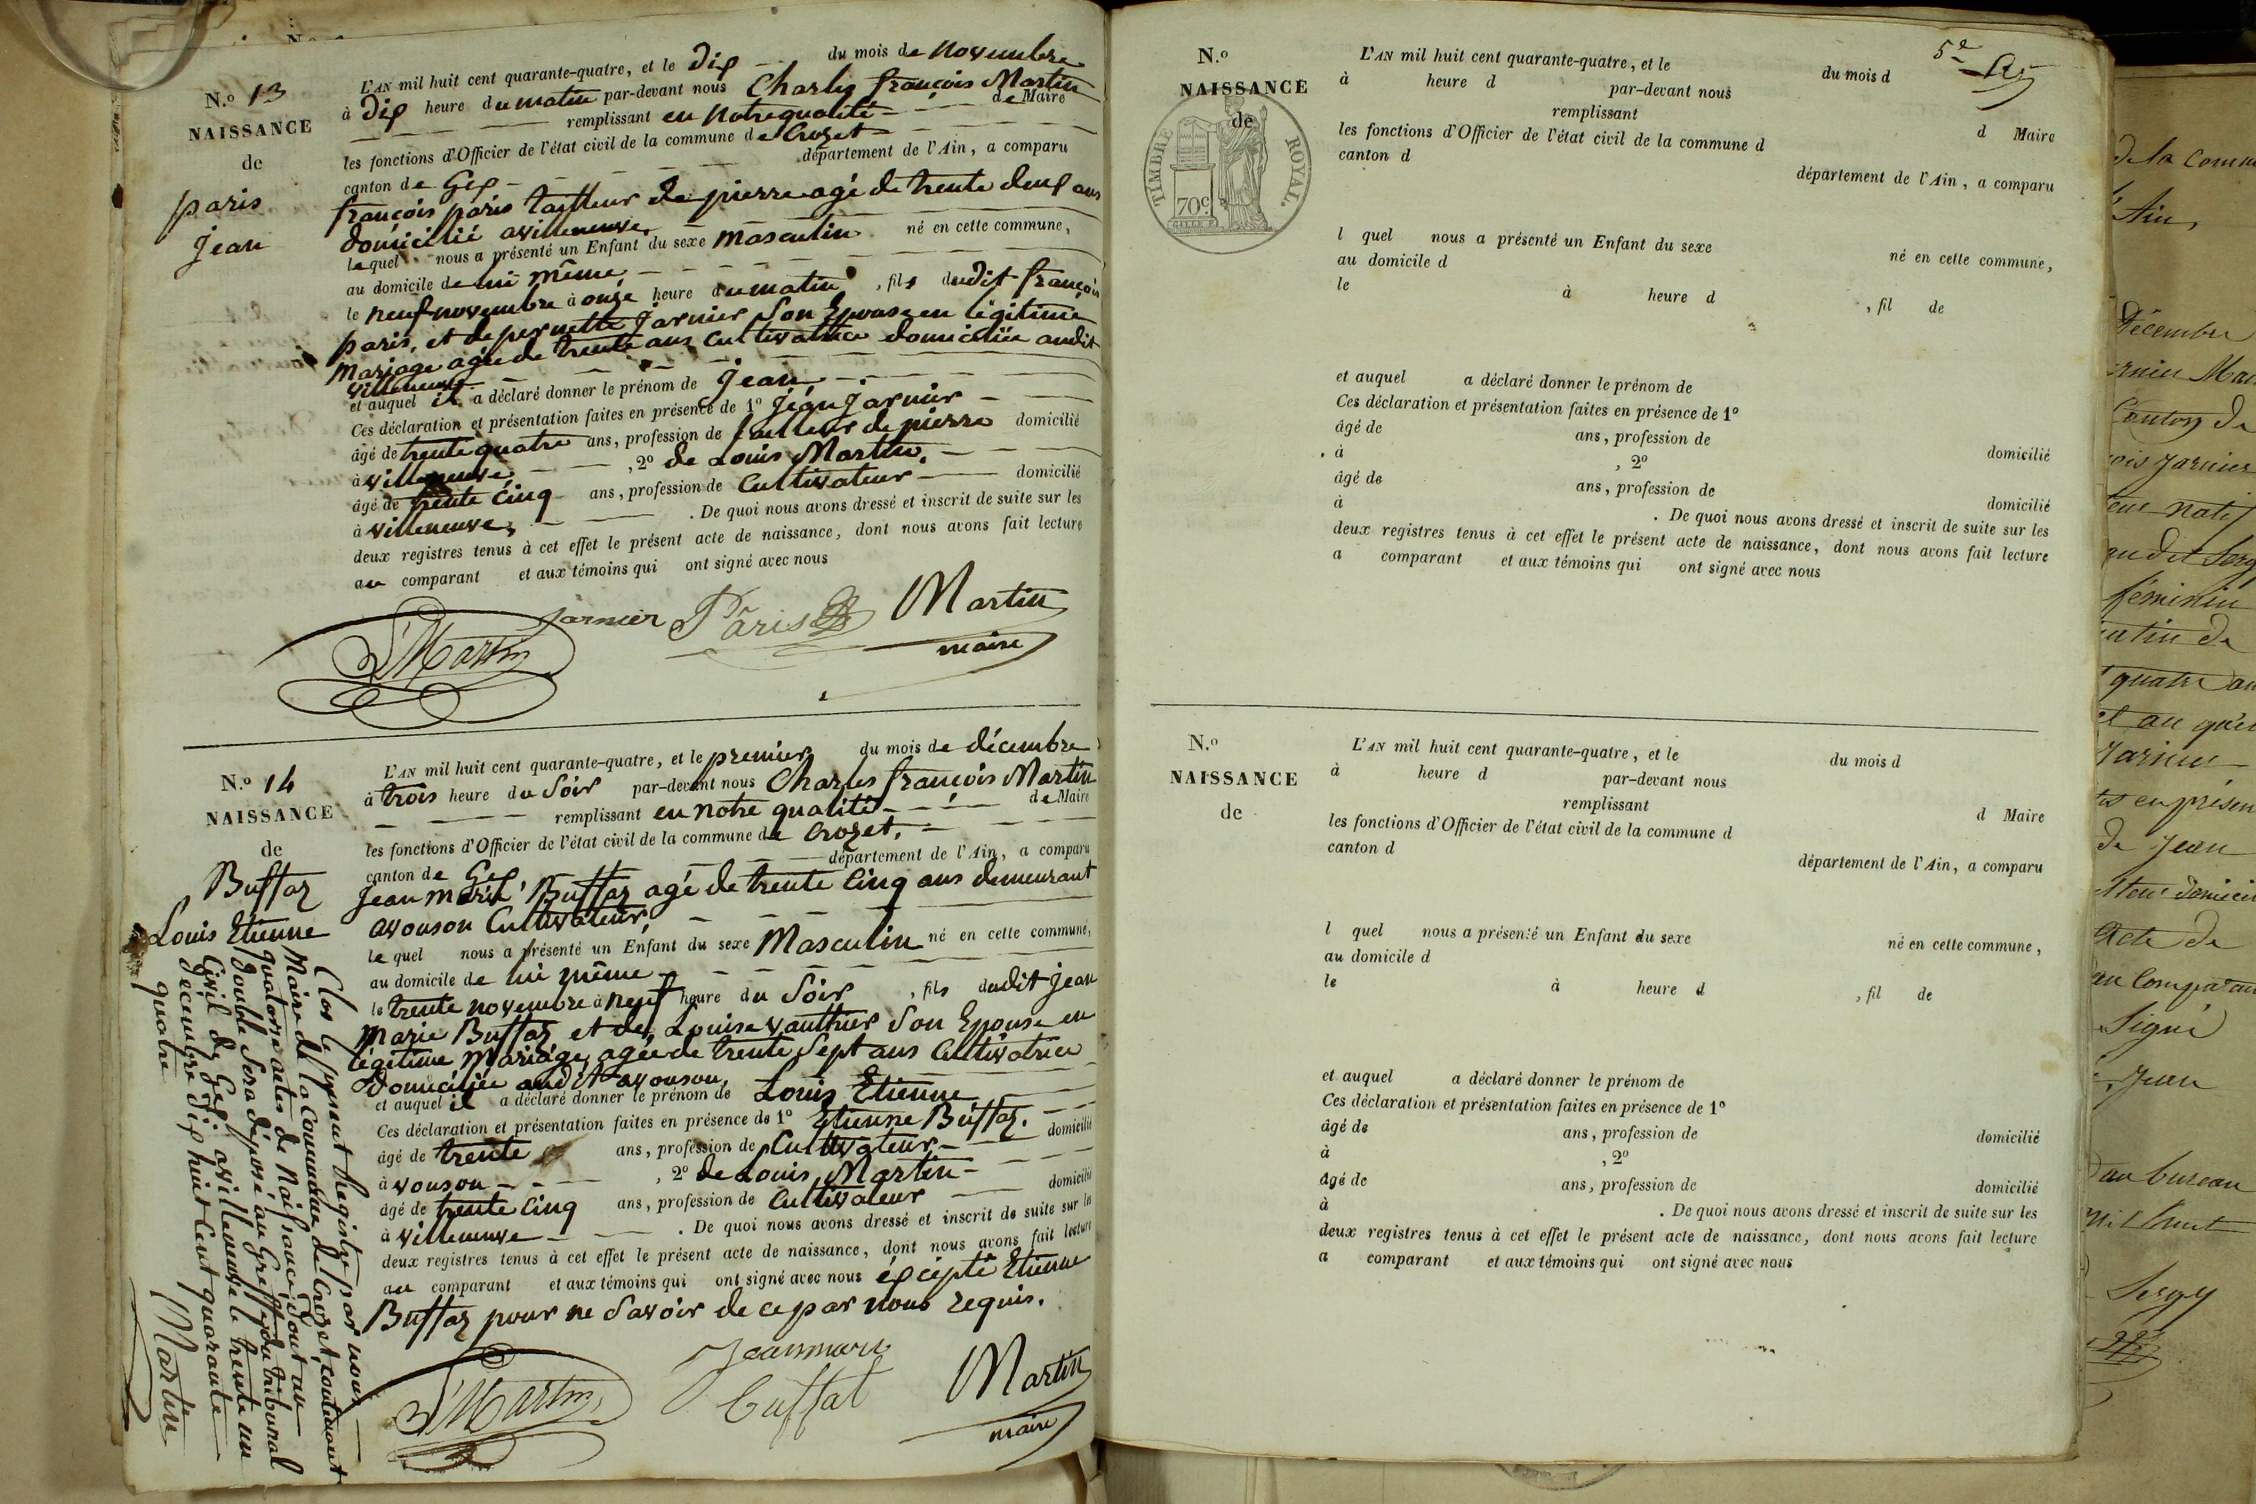 N.o 13
NAISSANCE
de
paris
Jean
L'AN mil huit cent quarante-quatre, et le Dix du mois de Novembre
à Dix heure du matin par-devant nous Charles françois Martin
remplissant en Notre qualité de Maire
les fonctions d'Officier de l'état civil de la commune de Crozet
canton de Gex département de l'Ain, a comparu
françois paris tailleur de pierre agé de trente deux ans
domicilié a villeneuve,
lequel nous a présenté un Enfant du sexe masculin né en cette commune,
au domicile de lui même,
le neuf novembre à onze heure du matin, fils dudit françois
paris, et de pernette Jarnier Son Epouse en légitime
Mariage agée de trente ans cultivatrice domiciliée audit
villeneuve
et auquel il a déclaré donner le prénom de Jean
Ces déclaration et présentation faites en présence de 1o Jean Jarnier
âgé de trente quatre ans, profession de tailleur de pierre domicilié
à villeneuve, 2o de Louis Martin,
âgé de trente cinq ans, profession de Cultivateur domicilié
à villeneuve, . De quoi nous avons dressé et inscrit de suite sur les
deux registres tenus à cet effet le présent acte de naissance, dont nous avons fait lecture
au comparant et aux témoins qui ont signé avec nous
Jarnier Paris Martin
maire
Martin
N.o 14
NAISSANCE
de
Buffaz
Louis Etienne
L'AN mil huit cent quarante-quatre, et le premier du mois de décembre
à trois heure du Soir par-devant nous Charles françois Martin
remplissant en notre qualité de Maire
les fonctions d'Officier de l'état civil de la commune de Crozet,
canton de Gex, département de l'Ain, a comparu
Jean Marie Buffaz agé de trente Cinq ans demeurant
avouson Cultivateur,
lequel nous a présenté un Enfant du sexe Masculin né en cette commune,
au domicile de lui même
le trente novembre à neuf heure du Soir, fils dudit Jean
Marie Buffaz et de Louise vauthier Son Epouse en
légitime Mariage, agée de trente Sept ans Cultivatrice
domiciliée audit avouson,
et auquel il a déclaré donner le prénom de Louis Etienne
Ces déclaration et présentation faites en présence de 1o Etienne Buffaz.
âgé de trente ans, profession de Cultivateur domicilié
à vouson, 2o de Louis Martin
âgé de trente Cinq ans, profession de Cultivateur domicilié
à villeneuve . De quoi nous avons dressé et inscrit de suite sur les
deux registres tenus à cet effet le présent acte de naissance, dont nous avons fait lecture
au comparant et aux témoins qui ont signé avec nous éxcipté Etienne
Buffaz pour ne Savoir de ce par nous requis.
Jeanmarie
Buffat
Martin
maire
Martin
Clos le présent Registre par nous
Maire de la Commune de Crozet, contenant
quatorze actes de Naissance, dont un
double Sera déposé au Greffe du tribunal
Civil de Gex, a villeneuve le trente un
décembre dix huit Cent quarante
quatre
Martin
5e
N.o
NAISSANCE
de
TIMBRE ROYAL.
70c.
L'AN mil huit cent quarante-quatre, et le du mois d
à heure d par-devant nous
remplissant d Maire
les fonctions d'Officier de l'état civil de la commune d
canton d département de l'Ain, a comparu
l quel nous a présenté un Enfant du sexe né en cette commune,
au domicile d
le à heure d , fil de
et auquel a déclaré donner le prénom de
Ces déclaration et présentation faites en présence de 1o
âgé de ans, profession de domicilié
à , 2o
âgé de ans, profession de domicilié
à . De quoi nous avons dressé et inscrit de suite sur les
deux registres tenus à cet effet le présent acte de naissance, dont nous avons fait lecture
a comparant et aux témoins qui ont signé avec nous
N.o
NAISSANCE
de
L'AN mil huit cent quarante-quatre, et le du mois d
à heure d par-devant nous
remplissant d Maire
les fonctions d'Officier de l'état civil de la commune d
canton d département de l'Ain, a comparu
l quel nous a présenté un Enfant du sexe né en cette commune,
au domicile d
le à heure d , fil de
et auquel a déclaré donner le prénom de
Ces déclaration et présentation faites en présence de 1o
âgé de ans, profession de domicilié
à , 2o
âgé de ans, profession de domicilié
à . De quoi nous avons dressé et inscrit de suite sur les
deux registres tenus à cet effet le présent acte de naissance, dont nous avons fait lecture
a comparant et aux témoins qui ont signé avec nous
de la comm
Ain,
Décembre
Canton de
Jarnier
natif
féminin
quatre an
Jarnier
en présen
de Jean
Acte de
Signé
Jean
au bureau
Sergy